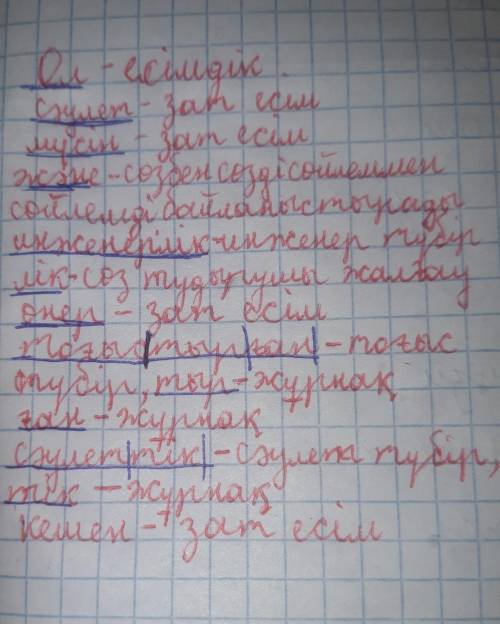 Ол - есімдік.
сәулет - зат есім
мүсін - зат есім
және - сөзбен сөзді сөйлеммен
сөйлемді байланыстырады
инженерлік - инженер түбір
лік - сөз тудырушы жалғау
өнер - зат есім
тоғыс|тыр|ған| - тоғыс
түбір, тыр - жұрнақ
ған - жұрнақ
сәулет|тік| - сәулета түбір,
тік - жұрнақ
кешен - зат есім